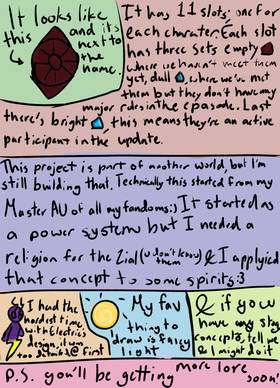 It looks like
this
and it's
next to
the name.
It has 11 slots: one for
each charater. Each slot
has three sets empty
where we haven't meet them
yet, dull
where we've met
them but they don't have any
major roles in the epasode. Last
there's bright
, this means they're an active
participant in the update.
This project is part of another world, but I'm
still building that. Technically this started from my
Master AU of all my fandoms:) It started as
a power system but I needed a
religion for the Zial (u don't know them)
& I applyied
that concept to some spirits:3
I had the
hardest time
with Electrics
design, it was
too detailed @ first
My fav
thing to
draw is faicy
light
& if you
have any sky
concepts, tell me
& I might do it
P.S. you'll be getting more lore
soon!